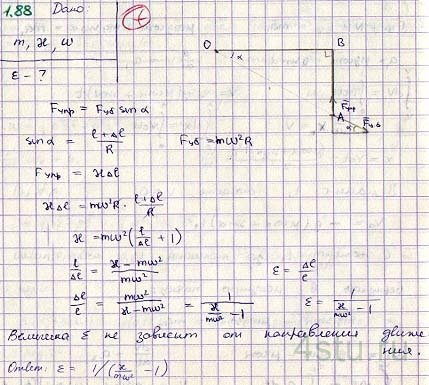 1.88 Дано:
m, ϰ, ω
ε - ?
O B
α
A F̄упр
x α F̄цб
Fупр = Fцб sin α
sin α = (ℓ + Δℓ)/R Fцб = mω²R
Fупр = ϰΔℓ
ϰΔℓ = mω²R · (ℓ + Δℓ)/R
ϰ = mω²(ℓ/Δℓ + 1)
ℓ/Δℓ = (ϰ - mω²)/mω² ε = Δℓ/ℓ
Δℓ/ℓ = mω²/(ϰ - mω²) = 1/(ϰ/mω² - 1) ε = 1/(ϰ/mω² - 1)
Величина ε не зависит от направления движе
ния.
Ответ: ε = 1/(ϰ/mω² - 1)